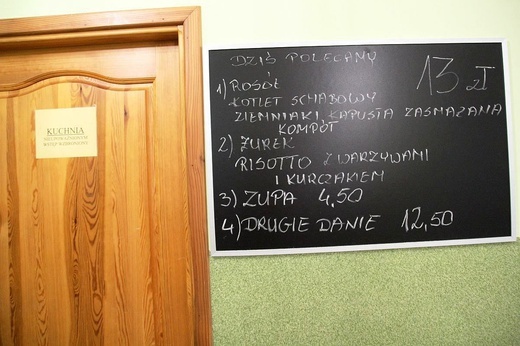 KUCHNIA
NIEUPOWAŻNIONYM
WSTĘP WZBRONIONY
DZIŚ POLECAMY
13 zł
1) ROSÓŁ
KOTLET SCHABOWY
ZIEMNIAKI, KAPUSTA ZASMAŻANA
KOMPÓT
2) ŻUREK
RISOTTO Z WARZYWAMI
I KURCZAKIEM
3) ZUPA 4,50
4) DRUGIE DANIE 12,50